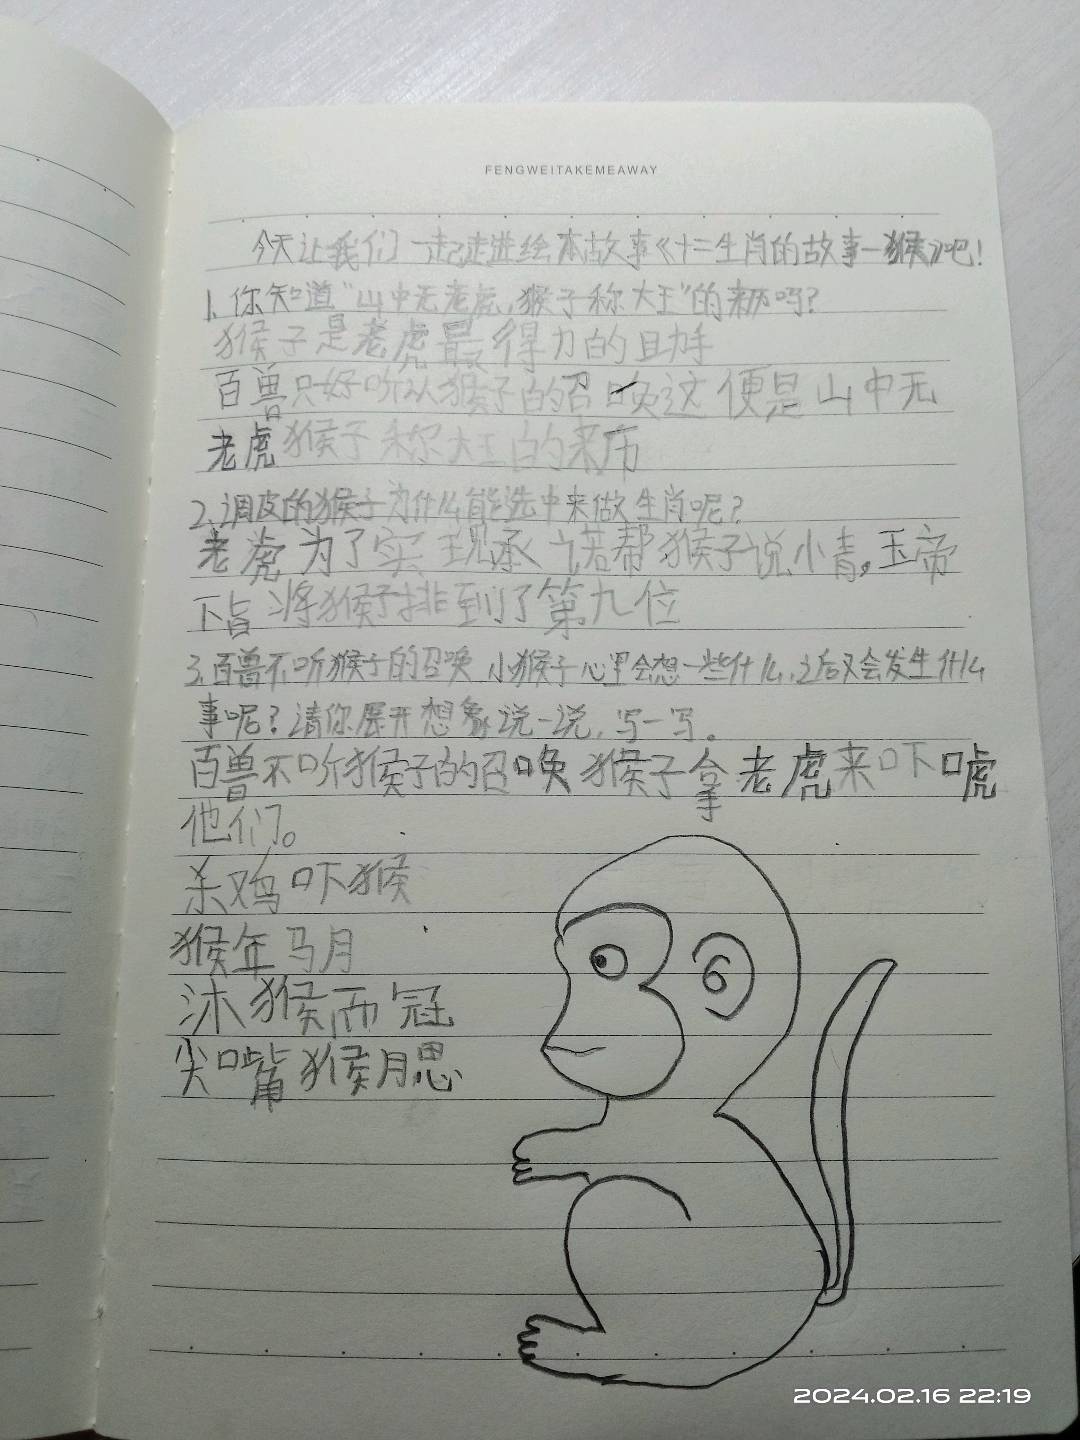 FENGWEITAKEMEAWAY
今天让我们一起走进绘本故事《十二生肖的故事—猴》吧!
1.你知道“山中无老虎,猴子称大王”的来历吗?
猴子是老虎最得力的助手
百兽只好听从猴子的召唤这便是山中无
老虎猴子称大王的来历
2.调皮的猴子为什么能选中来做生肖呢?
老虎为了实现承诺帮猴子说小青,玉帝
下旨将猴子排到了第九位
3.百兽不听猴子的召唤 小猴子心里会想一些什么,之后又会发生什么
事呢?请你展开想象说一说,写一写。
百兽不听猴子的召唤 猴子拿老虎来吓唬
他们。
杀鸡吓猴
猴年马月
沐猴而冠
尖嘴猴腮
2024.02.16 22:19